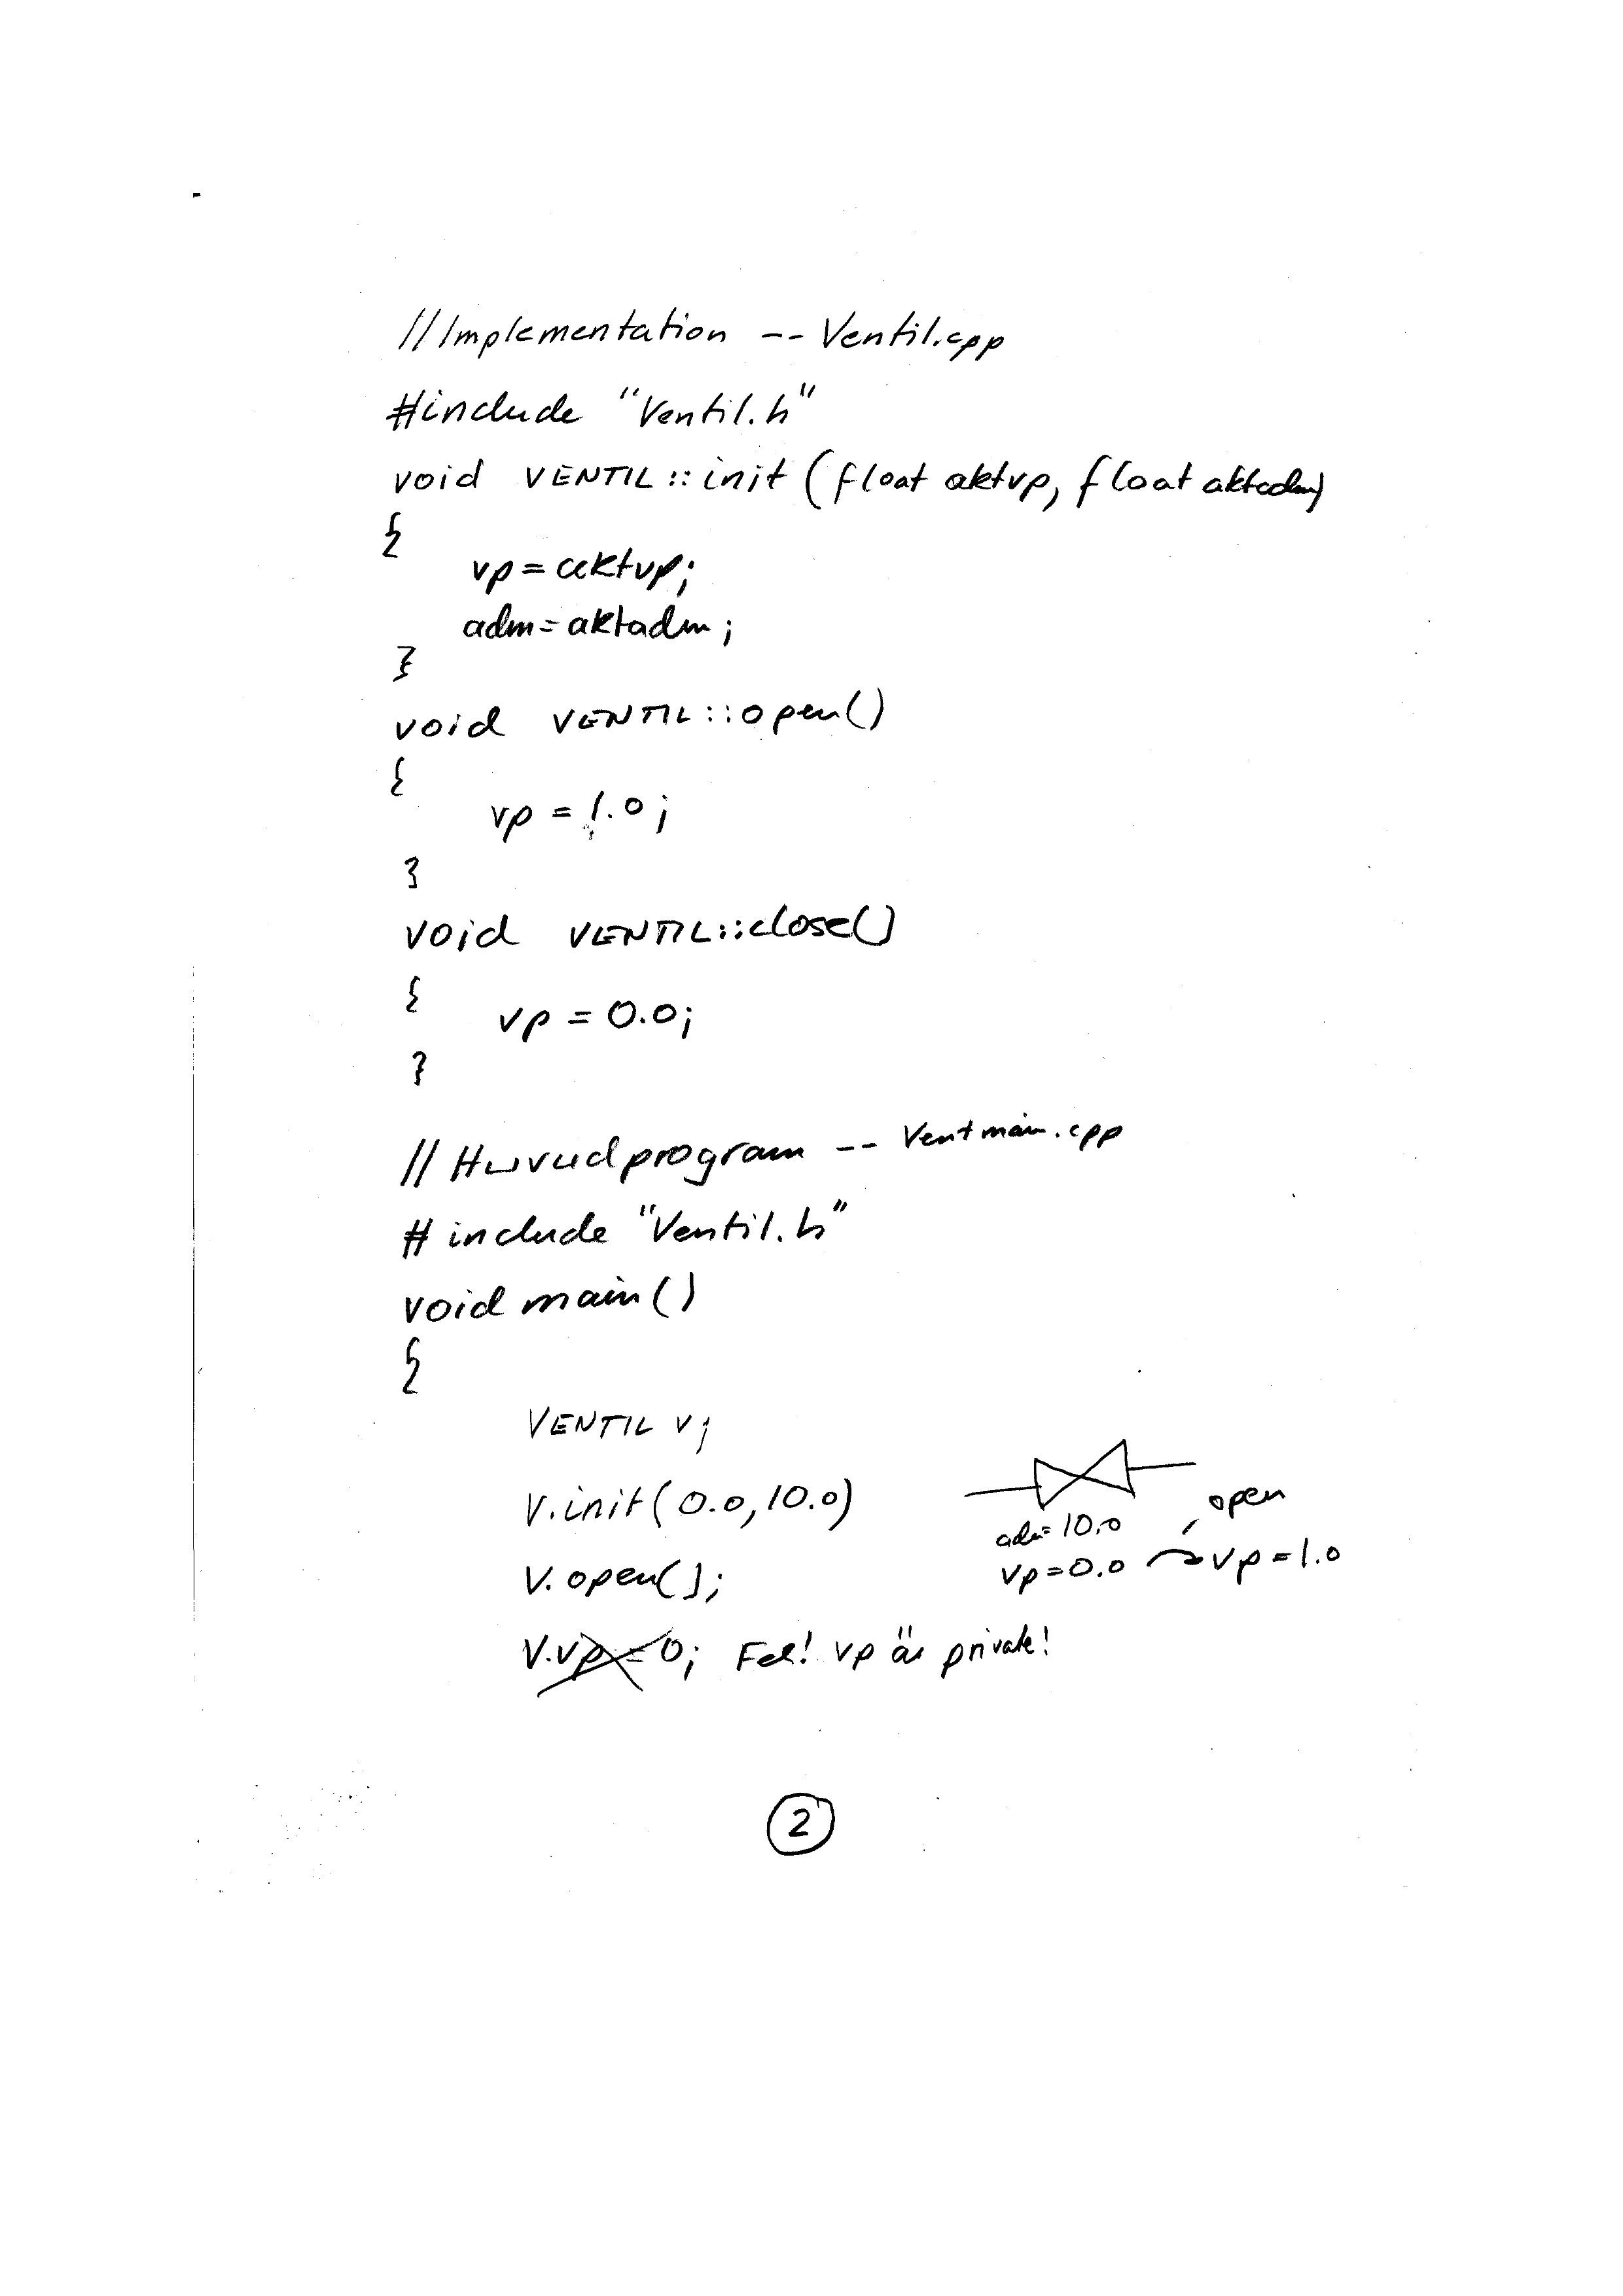 //Implementation -- Ventil.cpp
#include "Ventil.h"
void VENTIL::init (float aktvp, float aktadm)
{
vp = aktvp;
adm = aktadm;
}
void VENTIL::open()
{
vp = 1.0;
}
void VENTIL::close()
{
vp = 0.0;
}
// Huvudprogram -- Ventmain.cpp
# include "Ventil.h"
void main()
{
VENTIL v;
V.init(0.0,10.0)
V.open();
V.vp=0; Fel! vp är private!
open
adm=10.0
vp=0.0 vp=1.0
2